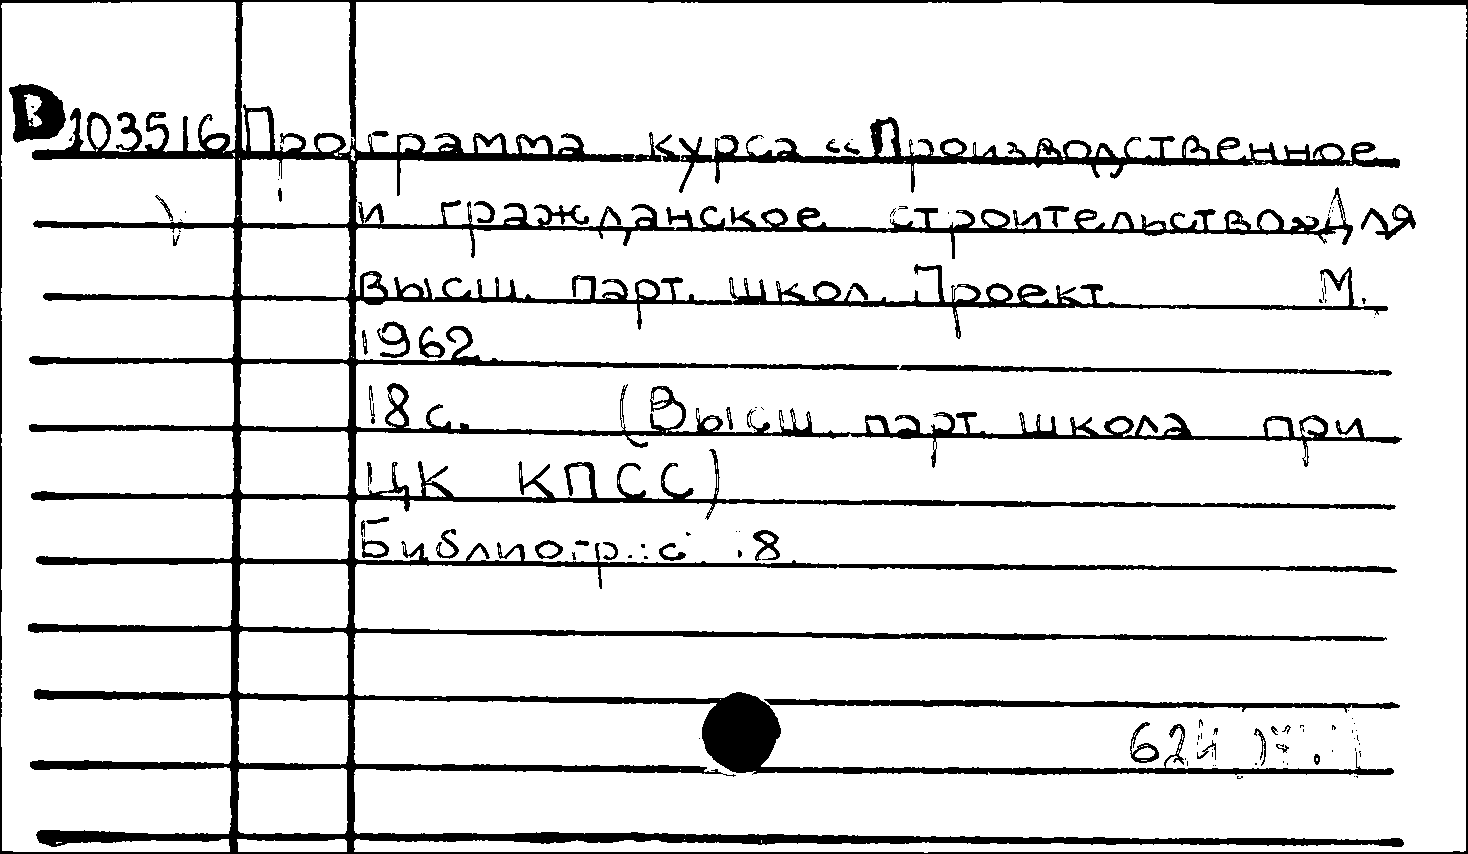 В 103516 Программа курса «Производственное
и гражданское строительство» Для
высш. парт. школ. Проект. М.
1962.
18 с. (Высш. парт. школа при
ЦК КПСС)
Библиогр.: с. 18.
624